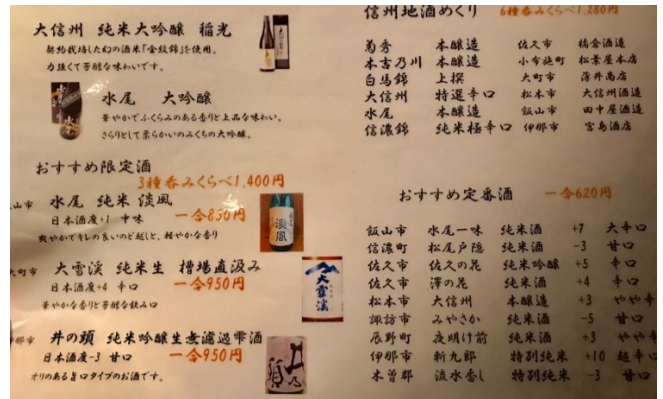 大信州 純米大吟醸 稲光
契約栽培した幻の酒米「金紋錦」を使用。
力強くて芳醇な味わいです。
水尾 大吟醸
華やかでふくらみのある香りと上品な味わい。
さらりとして柔らかいのみくちの大吟醸。
おすすめ限定酒
3種呑みくらべ1,400円
山市 水尾 純米 淡風
日本酒度+1 中味 一合850円
爽やかでキレの良いのど越しと、軽やかな香り
淡風
町市 大雪渓 純米生 槽場直汲み
日本酒度+4 辛口 一合950円
華やかな香りと芳醇な飲み口
大雪渓
那市 井の頭 純米吟醸生無濾過雫酒
日本酒度-3 甘口 一合950円
オリのある旨口タイプのお酒です。
井乃頭
信州地酒めぐり 6種呑みくらべ1,280円
菊秀 本醸造 佐久市 橘倉酒造
本吉乃川 本醸造 小布施町 松葉屋本店
白馬錦 上撰 大町市 薄井商店
大信州 特選辛口 松本市 大信州酒造
水尾 本醸造 飯山市 田中屋酒造
信濃錦 純米極辛口 伊那市 宮島酒店
おすすめ定番酒 一合620円
飯山市 水尾一味 純米酒 +7 大辛口
信濃町 松尾戸隠 純米酒 -3 甘口
佐久市 佐久の花 純米吟醸 +5 辛口
佐久市 澤の花 純米酒 +4 辛口
松本市 大信州 本醸造 +3 やや辛
諏訪市 みやさか 純米酒 -5 甘口
辰野町 夜明け前 純米酒 +3 やや辛
伊那市 斬九郎 特別純米 +10 超辛口
木曽郡 流水香し 特別純米 -3 甘口